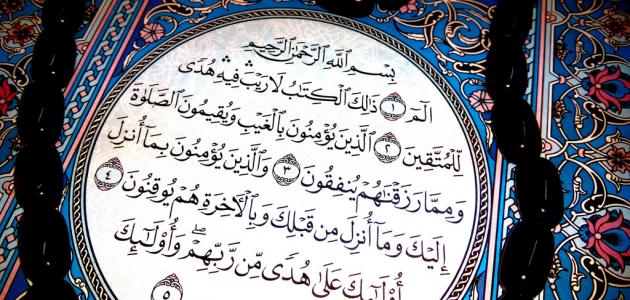 بِسْمِ ٱللَّهِ ٱلرَّحْمَٰنِ ٱلرَّحِيمِ
الٓمٓ ١ ذَٰلِكَ ٱلْكِتَٰبُ لَا رَيْبَ ۛ فِيهِ ۛ هُدًى
لِّلْمُتَّقِينَ ٢ ٱلَّذِينَ يُؤْمِنُونَ بِٱلْغَيْبِ وَيُقِيمُونَ ٱلصَّلَوٰةَ
وَمِمَّا رَزَقْنَٰهُمْ يُنفِقُونَ ٣ وَٱلَّذِينَ يُؤْمِنُونَ بِمَآ أُنزِلَ
إِلَيْكَ وَمَآ أُنزِلَ مِن قَبْلِكَ وَبِٱلْأَخِرَةِ هُمْ يُوقِنُونَ ٤
أُو۟لَٰٓئِكَ عَلَىٰ هُدًى مِّن رَّبِّهِمْ ۖ وَأُو۟لَٰٓئِكَ
٥